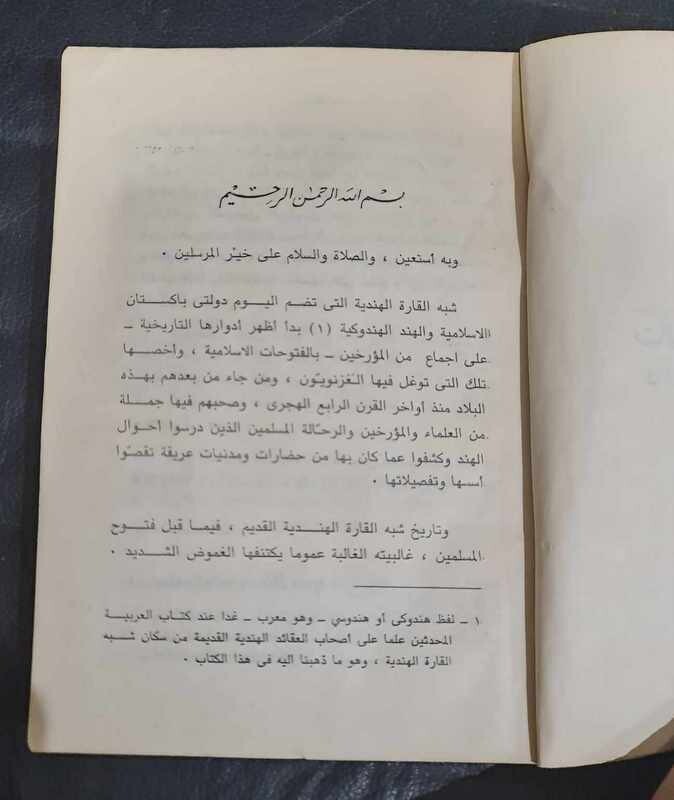 بسم الله الرحمن الرحيم
وبه أستعين ، والصلاة والسلام على خير المرسلين .
شبه القارة الهندية التى تضم اليوم دولتى باكستان
الاسلامية والهند الهندوكية (١) بدأ أظهر أدوارها التاريخية ــ
على اجماع من المؤرخين ــ بالفتوحات الاسلامية ، وأخصها
تلك التى توغل فيها الغزنويون ، ومن جاء من بعدهم بهذه
البلاد منذ أواخر القرن الرابع الهجرى ، وصحبهم فيها جملة
من العلماء والمؤرخين والرحالة المسلمين الذين درسوا أحوال
الهند وكشفوا عما كان بها من حضارات ومدنيات عريقة تقصوا
أسسها وتفصيلاتها .
وتاريخ شبه القارة الهندية القديم ، فيما قبل فتوح
المسلمين ، غالبيته الغالبة عموما يكتنفها الغموض الشديد .
١ ــ لفظ هندوكى أو هندوسي ــ وهو معرب ــ غدا عند كتاب العربية
المحدثين علما على أصحاب العقائد الهندية القديمة من سكان شبه
القارة الهندية ، وهو ما ذهبنا اليه فى هذا الكتاب .